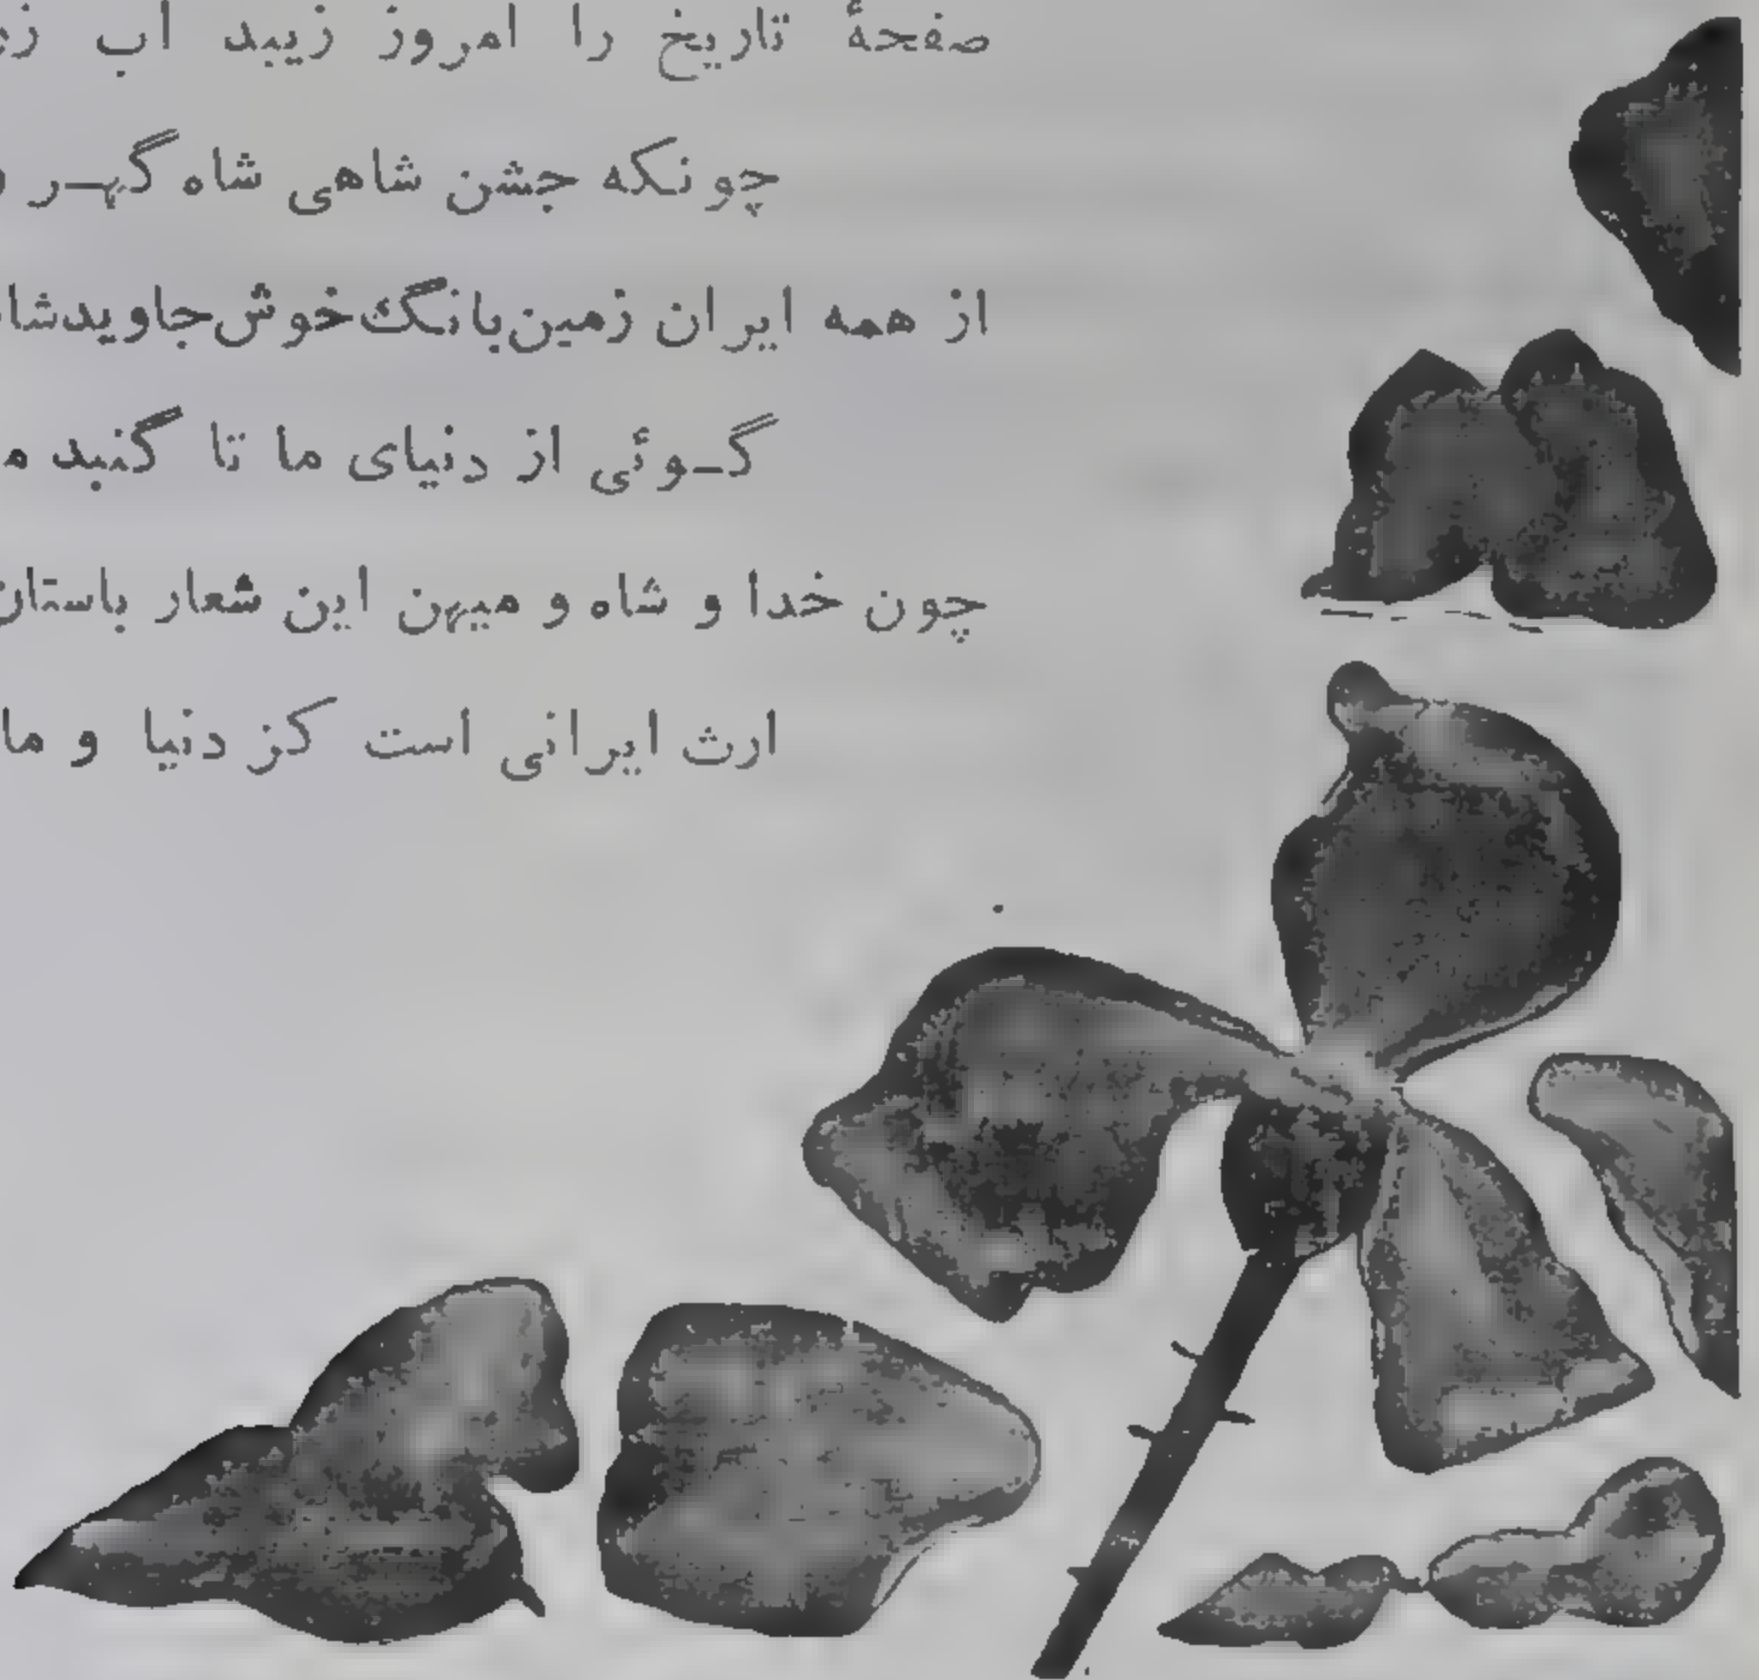 صفحهٔ تاریخ را امروز زیبد آب
چونکه جشن شاهی شاه گهـر
از همه ایران زمین بانگ خوش جاوید
گـوئی از دنیای ما تا گنبد
چون خدا و شاه و میهن این شعار باستان
ارث ایرانی است کز دنیا و